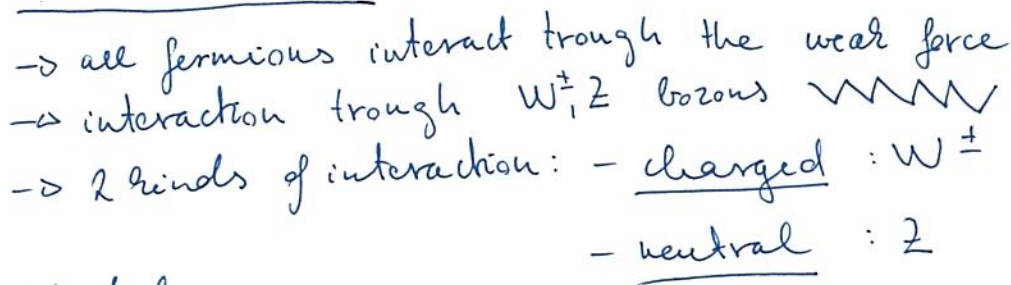 → all fermions interact trough the weak force
→ interaction trough W±, Z bozons
→ 2 kinds of interaction: - charged : W±
- neutral : Z